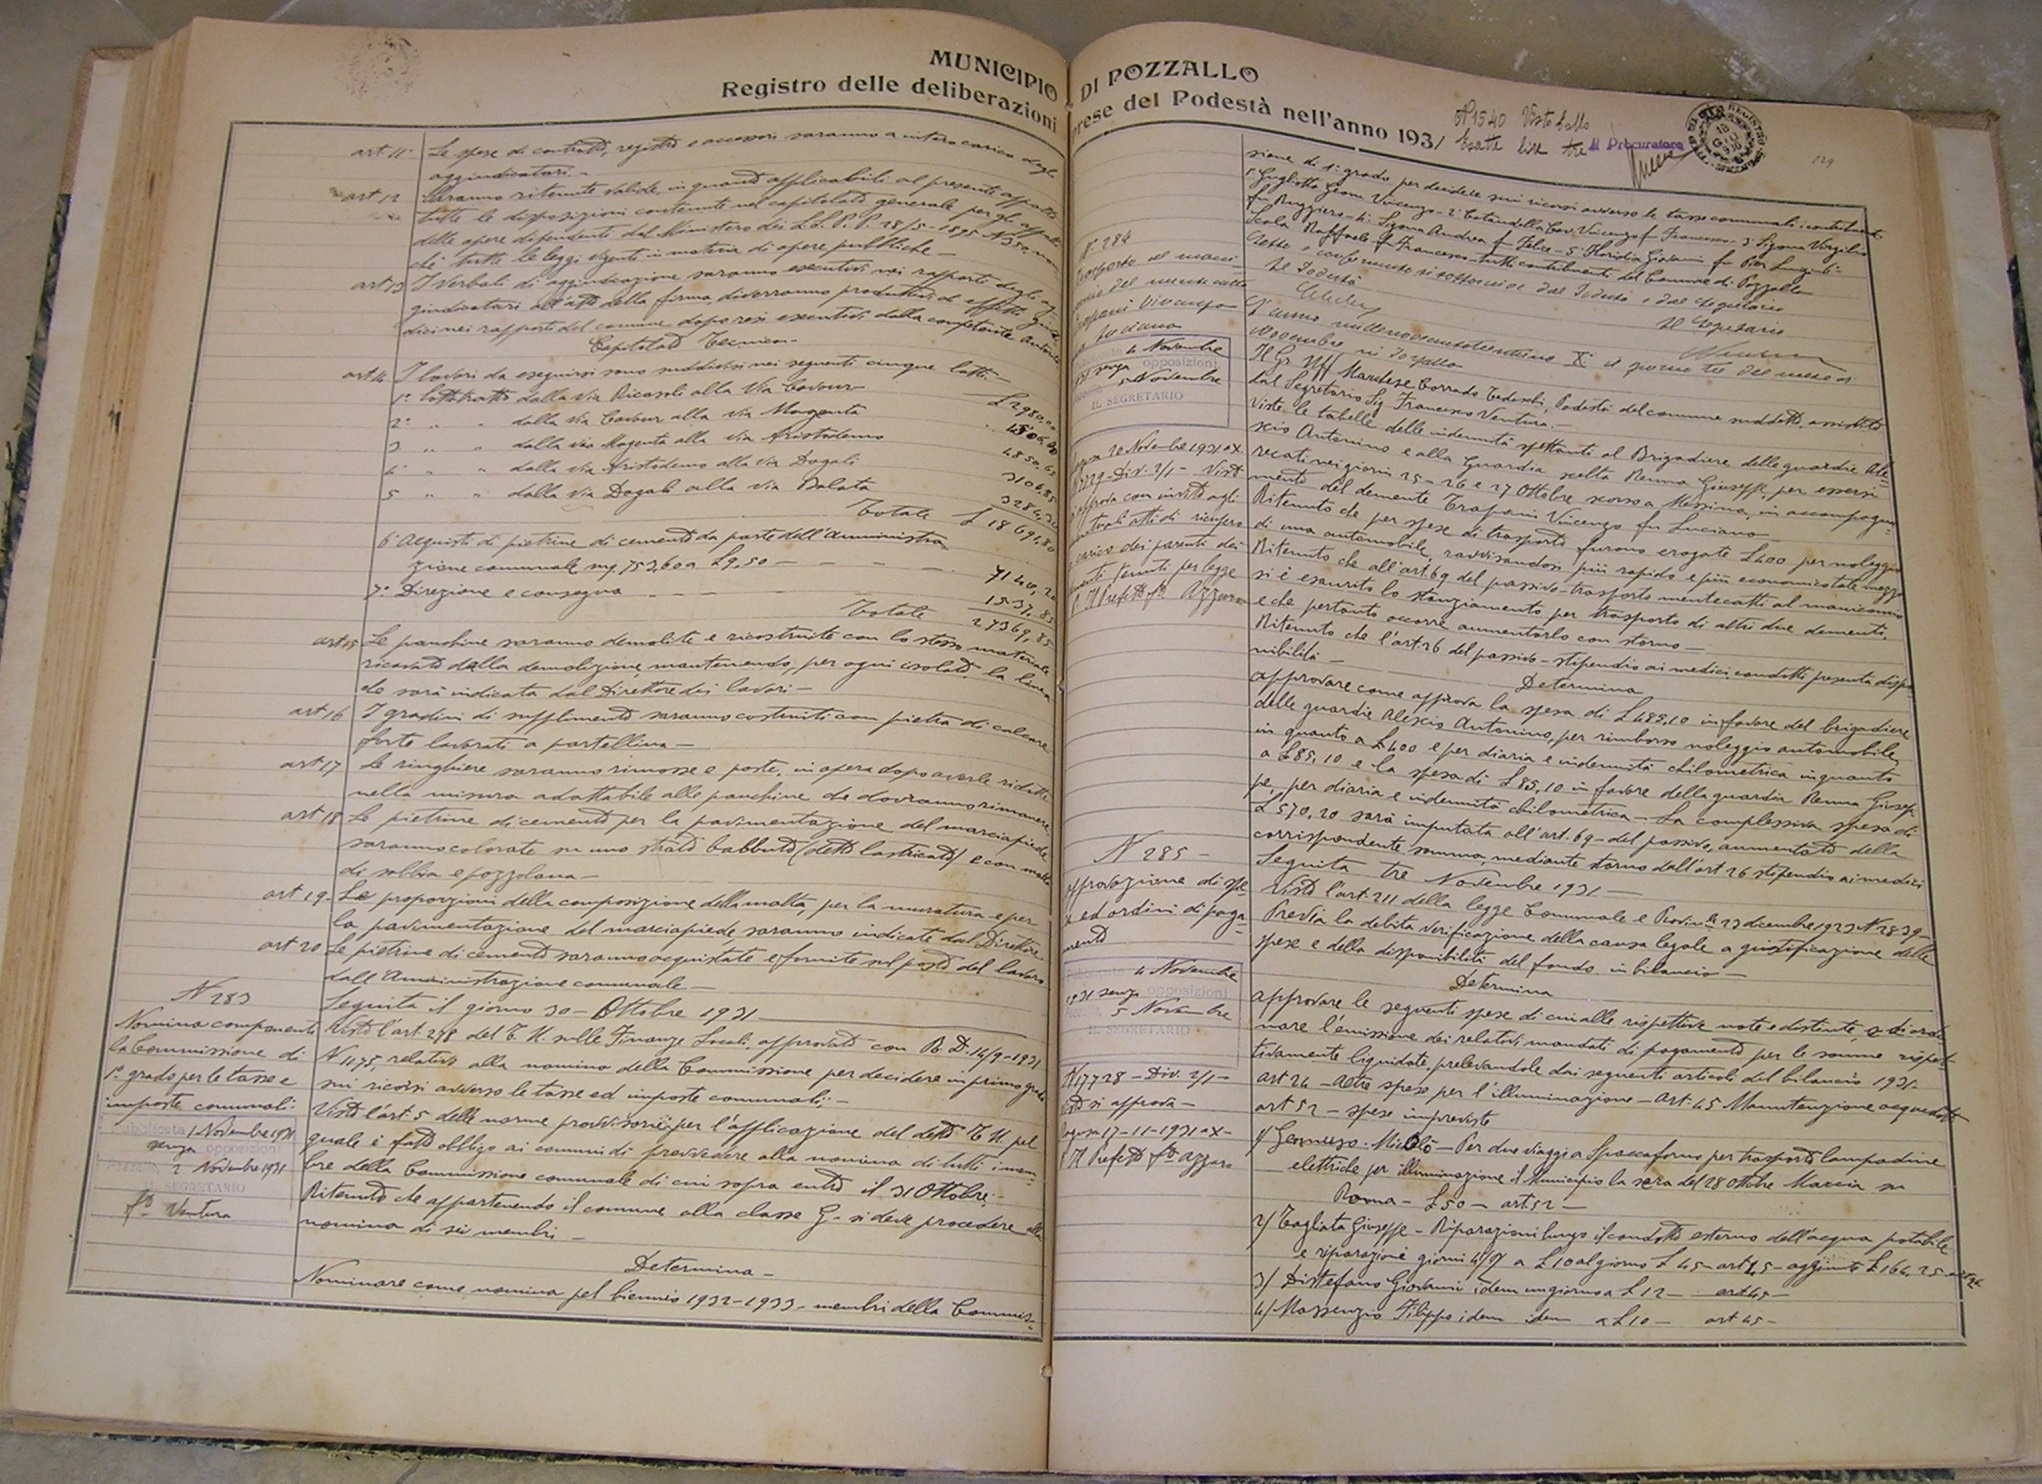 MUNICIPIO DI POZZALLO
Registro delle deliberazioni prese del Podestà nell'anno 1931
art 11 Le spese di contratto, registro e accessori saranno a intero carico degli
aggiudicatari.—
art 12 Saranno ritenute valide, in quanto applicabili al presente appalto
tutte le disposizioni contenute nel capitolato generale per gli appalti
delle opere dipendenti dal Ministero dei LL. P. P. 28/5-1895 N 350, non
chè tutte le leggi vigenti in materia di opere pubbliche—
art 13 I Verbali di aggiudicazione saranno esecutivi nei rapporti degli ag-
giudicatari all'atto della firma, diverranno produttivi di effetti giuri-
dici nei rapporti del comune dopo resi esecutivi dalla competente autorità
Capitolato Tecnico—
art 14 I lavori da eseguirsi sono suddivisi nei seguenti cinque lotti:—
1° lotto tratto dalla via Ricasoli alla Via Cavour — £ 2980,00
2° " " dalla via Cavour alla via Magenta
3 " " dalla via Magenta alla via Aristodemo 4850,65
4 " " dalla via Aristodemo alla via Dogali 3106,85
5 " " dalla via Dogali alla via Balata 3284,30
Totale £ 18691,80
6° Acquisto di pietrine di cemento da parte dell'amministra-
zione comunale mq. 752,60 a £ 9,50 — — — — 7140,20
7° Direzione e consegna — — — 1537,85
Totale 27369,85
art 15 Le panchine saranno demolite e ricostruite con lo stesso materiale
ricavato dalla demolizione, mantenendo, per ogni isolato, la linea
che sarà indicata dal Direttore dei lavori—
art 16 I gradini di supplimento saranno costruiti con pietra di calcare
forte lavorati a martellina—
art 17 Le ringhiere saranno rimosse e poste in opera dopo averle ridotte
nella misura adattabile alle panchine che dovranno rimanere
art 18 Le pietrine di cemento per la pavimentazione del marciapiede
saranno colorate su uno strato babbuto (detto lastricato) e con malta
di sabbia e pozzolana—
art 19- Le proporzioni della composizione della malta, per la muratura e per
la pavimentazione del marciapiede, saranno indicate dal Direttore
art 20 Le pietrine di cemento saranno acquistate e fornite sul posto del lavoro
dall'Amministrazione comunale—
N 283
Nomina componenti
la Commissione di
1° grado per le tasse e
imposte comunali.
Pubblicata 1 Novembre 1931
senza opposizioni
Pozzallo, 2 Novembre 1931
IL SEGRETARIO
fto Ventura
Seguita il giorno 30- Ottobre 1931
Visto l'art. 278 del T. U. sulle Finanze Locali, approvato con R. D. 14/9-1931
N 1175, relativo alla nomina della Commissione per decidere in primo grado
sui ricorsi avverso le tasse ed imposte comunali;—
Visto l'art. 5 delle norme provvisorie per l'applicazione del detto T. U. pel
quale è fatto obbligo ai comuni di provvedere alla nomina di tutti i mem
bre della Commissione comunale di cui sopra entro il 31 Ottobre;—
Ritenuto che appartenendo il comune alla classe G- si deve procedere alla
nomina di sei membri—
Determina—
Nominare come nomina pel biennio 1932-1933- membri della Commis-
N 1540 Visto bollo
Esatte lire tre Il Procuratore
129
sione di 1° grado per decidere sui ricorsi avverso le tasse comunali i contribuenti:
1° Gugliotta Geom. Vincenzo- 2° Cotandella Cav. Vincenzo fu Francesco- 3° Sigona Virgilio
fu Ruggiero- 4° Sigona Andrea fu Felice- 5° Floridia Giovanni fu Pier Luigi- 6°-
Scala Raffaele fu Francesco- tutti contribuenti del Comune di Pozzallo—
Letto e confermato si sottoscrive dal Podestà e dal Segretario
Il Podestà
Il Segretario
N. 284
Trasporto al mani-
comio del mentecatto
Trapani Vincenzo
fu Luciano
Pubblicata 4 Novembre
1931 senza opposizioni
5 Novembre
IL SEGRETARIO
Ragusa 20 Novembre 1931 ax
N 17729- Div. 2/1- Visto
si approva con invito agli
atti di ricupero
a carico dei parenti dei
dementi tenuti per legge
p. Il Prefetto fto Azzaro
L'anno millenovecentotrentuno X° il giorno tre del mese di
Novembre in Pozzallo
Il Gr. Uff. Marchese Corrado Tedeschi, Podestà del comune suddetto, assistito
dal Segretario Sig. Francesco Ventura.—
Viste le tabelle delle indennità spettanti al Brigadiere delle guardie Ale-
scio Antonino e alla Guardia scelta Renna Giuseppe, per essersi
recati nei giorni 25- 26 e 27 Ottobre scorso a Messina, in accompagna-
mento del demente Trapani Vincenzo fu Luciano—
Ritenuto che per spese di trasporto furono erogate £ 400 per noleggio
di una automobile, ravvisandosi più rapido e più economico tale mezzo
Ritenuto che all'art. 69 del passivo- trasporto mentecatti al manicomio
si è esaurito lo stanziamento per trasporto di altri due dementi,
e che pertanto occorre aumentarlo con storno—
Ritenuto che l'art. 26 del passivo- stipendio ai medici condotti presenta dispo
nibilità—
Determina
approvare come approva la spesa di £ 485,10 in favore del brigadiere
delle guardie Alescio Antonino, per rimborso noleggio automobile,
in quanto a £ 400 e per diaria e indennità chilometrica in quanto
a £ 85,10 e la spesa di £ 85,10 in favore della guardia Renna Giusep-
pe, per diaria e indennità chilometrica— La complessiva spesa di
£ 570,20 sarà imputata all'art. 69- del passivo, aumentato della
corrispondente somma, mediante storno dall'art 26 stipendio ai medici
N 285—
Approvazione di spe-
se ed ordini di paga-
mento
Pubblicata 4 Novembre
1931 senza opposizioni
5 Novembre
IL SEGRETARIO
N 17728- Div. 2/1-
Visto si approva—
Ragusa 17-11-1931 ax-
p. Il Prefetto fto Azzaro
Seguita tre Novembre 1931—
Visto l'art. 211 della legge Comunale e Provinle 23 dicembre 1923 N 2839—
Previa la debita verificazione della causa legale a giustificazione delle
spese e della disponibilità del fondo in bilancio—
Determina
approvare le seguenti spese di cui alle rispettive note e distinte, e di ordi-
nare l'emissione dei relativi mandati di pagamento per le somme rispet-
tivamente liquidate, prelevandole dai seguenti articoli del bilancio 1931-
art 24- Altre spese per l'illuminazione- Art. 45 Manutenzione acquedotto
art 52- spese impreviste
1/ Gennuso Michele- Per due viaggi a Spaccaforno per trasporto lampadine
elettriche per illuminazione il Municipio la sera del 28 ottobre Marcia su
Roma— £ 50— art. 52—
2/ Tagliata Giuseppe- Riparazioni lungo il condotto esterno dell'acqua potabile
e riparazione giorni 4½ a £ 10 al giorno £ 45- art 45- aggiunte £ 164,25
3/ Distefano Giovanni idem un giorno a £ 12— art 45—
4/ Massenzio Filippo idem idem a £ 10— art 45—